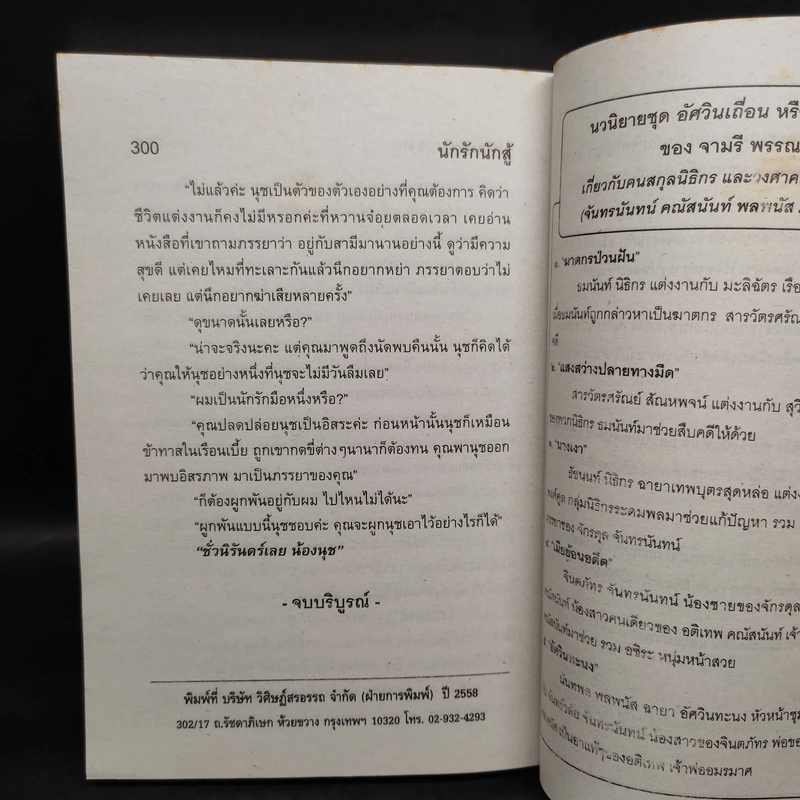 300
นักรักนักสู้
“ไม่แล้วค่ะ นุชเป็นตัวของตัวเองอย่างที่คุณต้องการ คิดว่า
ชีวิตแต่งงานก็คงไม่มีหรอกค่ะที่หวานจ๋อยตลอดเวลา เคยอ่าน
หนังสือที่เขาถามภรรยาว่า อยู่กับสามีมานานอย่างนี้ ดูว่ามีความ
สุขดี แต่เคยไหมที่ทะเลาะกันแล้วนึกอยากหย่า ภรรยาตอบว่าไม่
เคยเลย แต่นึกอยากฆ่าเสียหลายครั้ง”
“ดุขนาดนั้นเลยหรือ?”
“น่าจะจริงนะคะ แต่คุณมาพูดถึงนัดพบคืนนั้น นุชก็คิดได้
ว่าคุณให้นุชอย่างหนึ่งที่นุชจะไม่มีวันลืมเลย”
“ผมเป็นนักรักมือหนึ่งหรือ?”
“คุณปลดปล่อยนุชเป็นอิสระค่ะ ก่อนหน้านั้นนุชก็เหมือน
ข้าทาสในเรือนเบี้ย ถูกเขากดขี่ต่างๆนานาก็ต้องทน คุณพานุชออก
มาพบอิสรภาพ มาเป็นภรรยาของคุณ”
“ก็ต้องผูกพันอยู่กับผม ไปไหนไม่ได้นะ”
“ผูกพันแบบนี้นุชชอบค่ะ คุณจะผูกนุชเอาไว้อย่างไรก็ได้”
“ชั่วนิรันดร์เลย น้องนุช”
- จบบริบูรณ์ -
พิมพ์ที่ บริษัท วิศิษฎ์สรอรรถ จำกัด (ฝ่ายการพิมพ์) ปี 2558
302/17 ถ.รัชดาภิเษก ห้วยขวาง กรุงเทพฯ 10320 โทร. 02-932-4293
นวนิยายชุด อัศวินเถื่อน หรือ
ของ จามรี พรรณ
เกี่ยวกับคนสกุลนิธิกร และวงศาค
(จันทรนันทน์ คณัสนันท์ พลพนัส
๑. “ฆาตกรป่วนฝัน”
ธมนันท์ นิธิกร แต่งงานกับ มะลิฉัตร เรือ
เมื่อธมนันท์ถูกกล่าวหาเป็นฆาตกร สารวัตรศรัณ
คดี
๒. “แสงสว่างปลายทางมืด”
สารวัตรศรัณย์ สัณหพจน์ แต่งงานกับ สุวิ
ของพวกนิธิกร ธมนันท์มาช่วยสืบคดีให้ด้วย
๓. “นางเงา”
ธัชนนท์ นิธิกร ฉายาเทพบุตรสุดหล่อ แต่ง
กลุ่มนิธิกรระดมพลมาช่วยแก้ปัญหา รวม
ภรรยาของ จักรตุล จันทรนันทน์
๔. “เมียย้อนอดีต”
จินตภัทร จันทรนันทน์ น้องชายของจักรตุล
คณัสนันท์ น้องสาวคนเดียวของ อติเทพ คณัสนันท์ เจ้า
คณัสนันท์มาช่วย รวม อชิระ หนุ่มหน้าสวย
๕. “อัศวินทะนง”
นันทพล พลพนัส ฉายา อัศวินทะนง หัวหน้าชุม
จันทรนันทน์ น้องสาวของจินตภัทร พ่อขอ
เป็นอาแท้ๆของอติเทพ เจ้าพ่ออมรมาศ